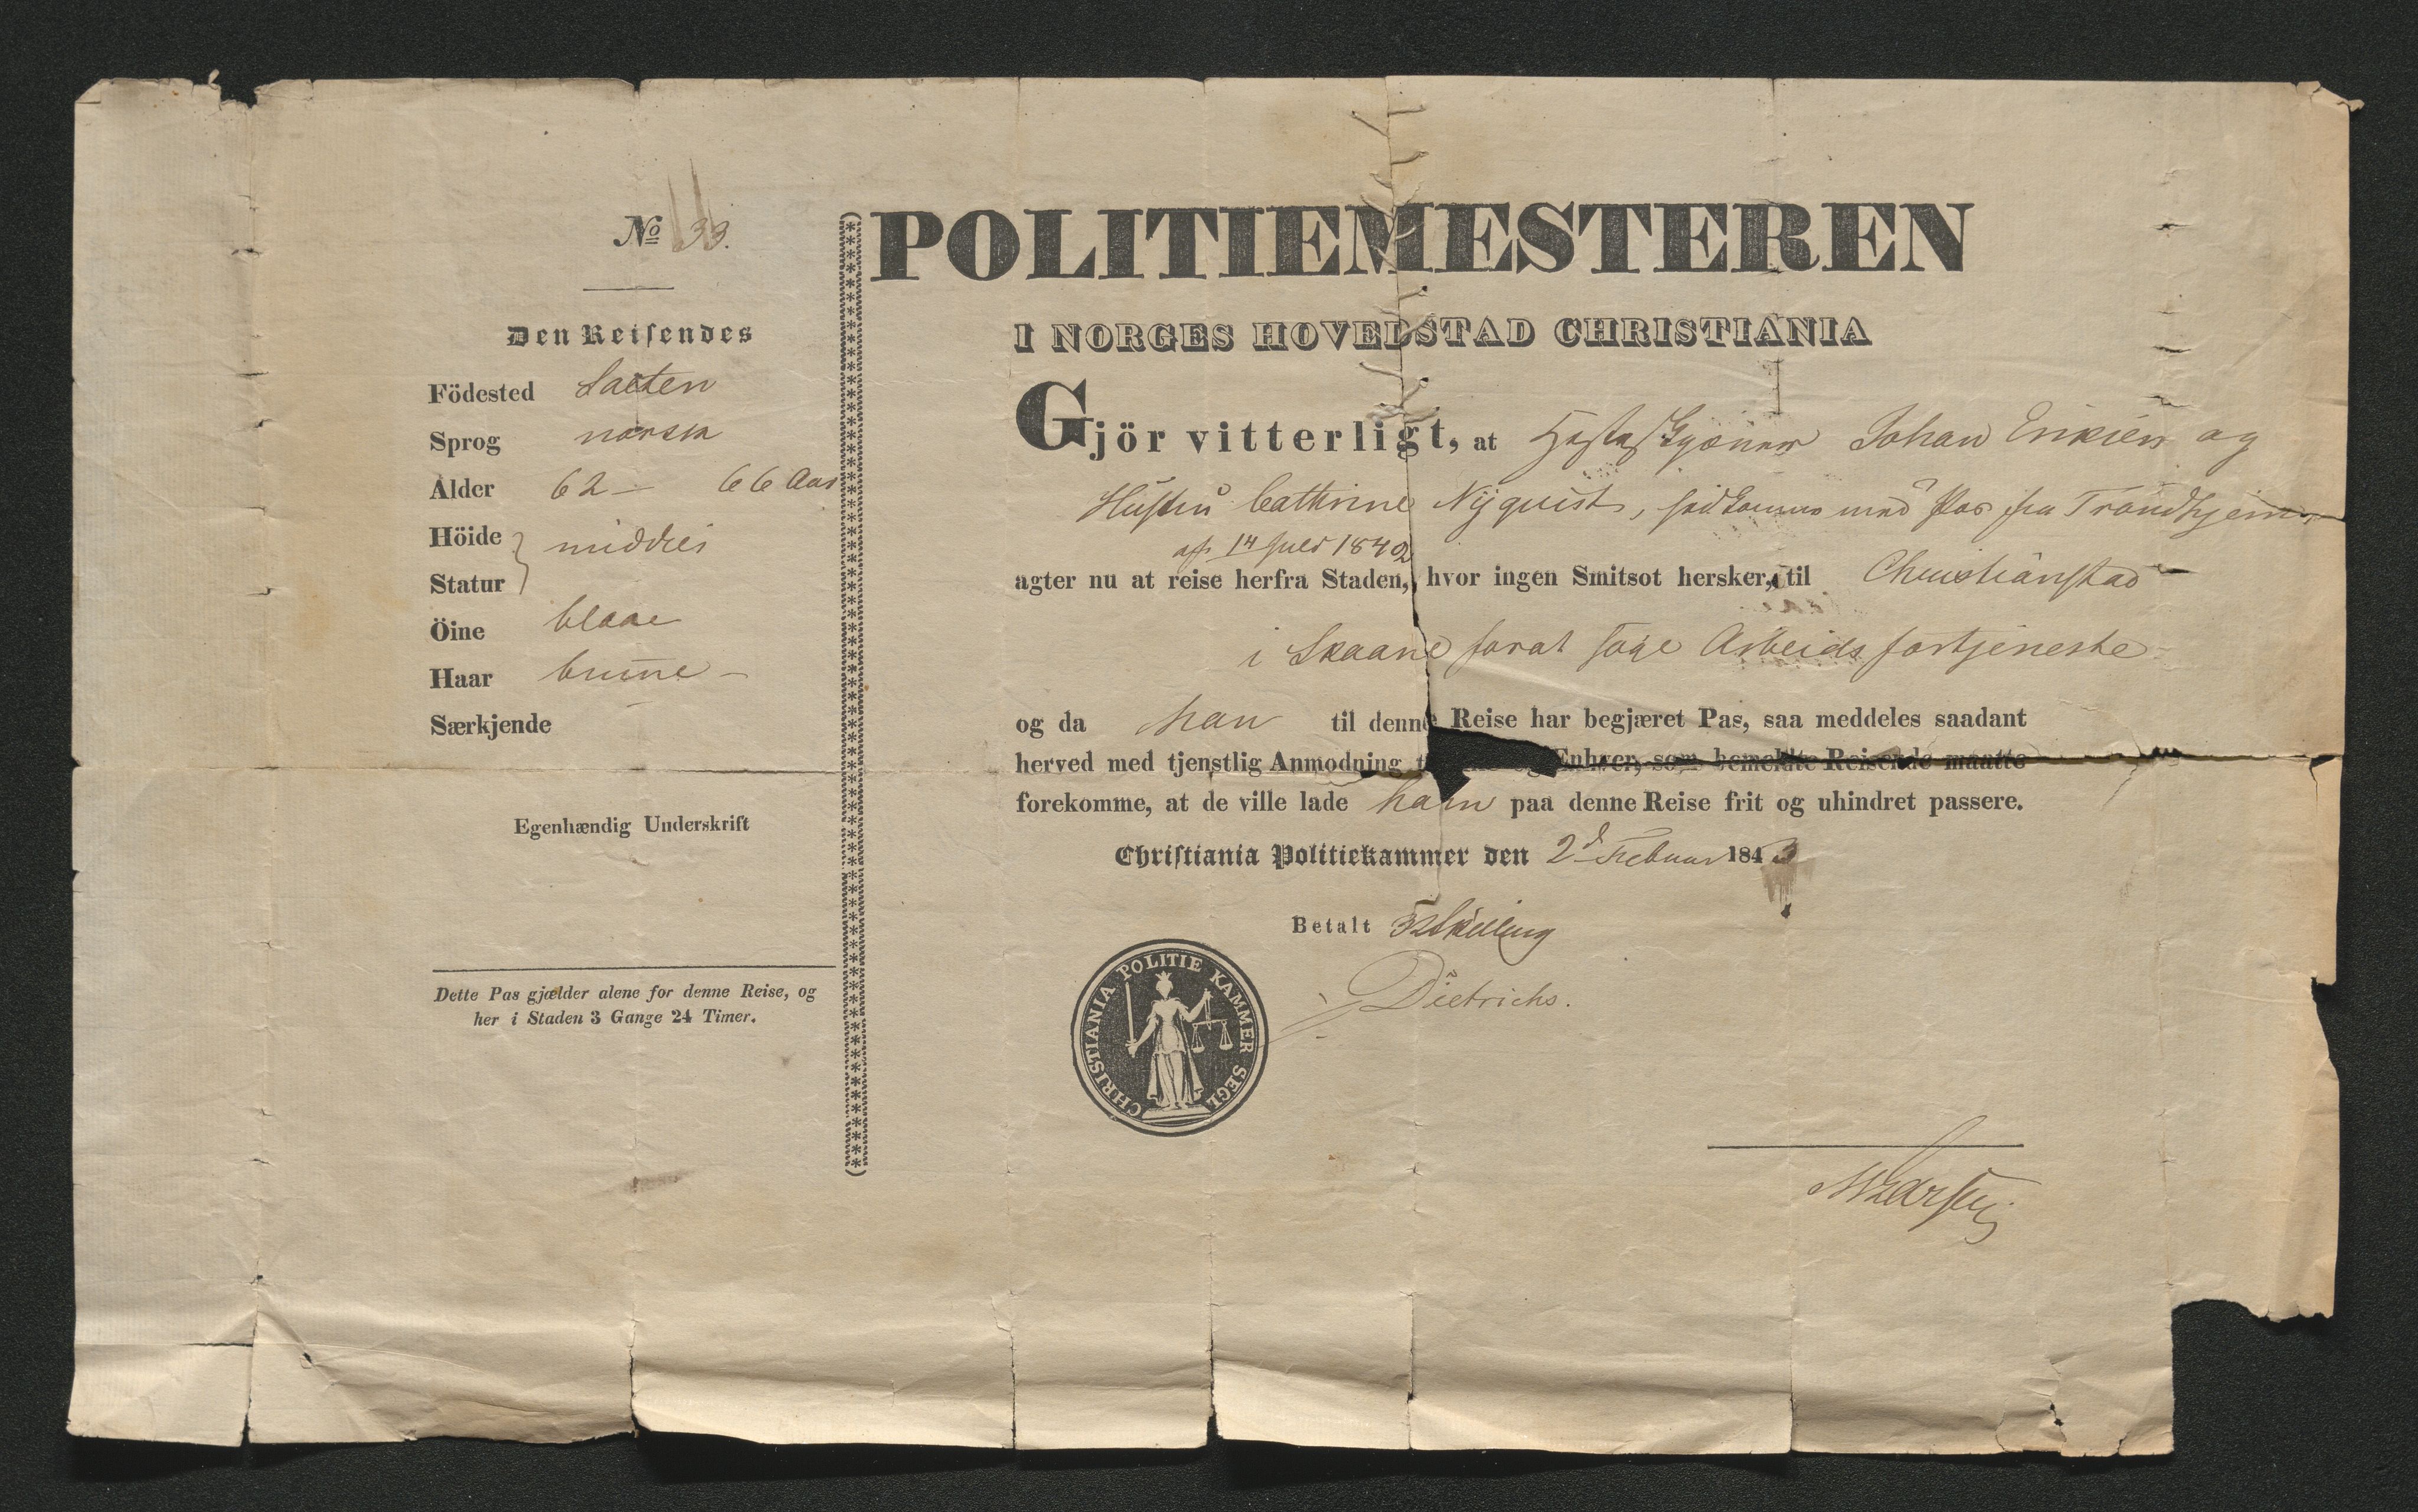 No 33.
Den Reisendes
Födested Saeten
Sprog norsk
Alder 62 – 66 Aar
Höide } middels
Statur
Öine blaae
Haar brune –
Særkjende
Egenhændig Underskrift
Dette Pas gjælder alene for denne Reise, og
her i Staden 3 Gange 24 Timer.
POLITIEMESTEREN
I NORGES HOVEDSTAD CHRISTIANIA
Gjör vitterligt, at Johan Eriksen og
Hustru Cathrine Nyquist, med Pas fra Trondhjem
af 14 Juli 1842
agter nu at reise herfra Staden, hvor ingen Smitsot hersker, til Christianstad
i Skaane forat söge Arbeidsfortjeneste
og da han til denne Reise har begjæret Pas, saa meddeles saadant
herved med tjenstlig Anmodning og Enhver, som bemeldte Reisende maatte
forekomme, at de ville lade ham paa denne Reise frit og uhindret passere.
Christiania Politiekammer den 2d Februar 1843
Betalt Skilling
Dietrichs.
CHRISTIANIA POLITIE KAMMER SEGL